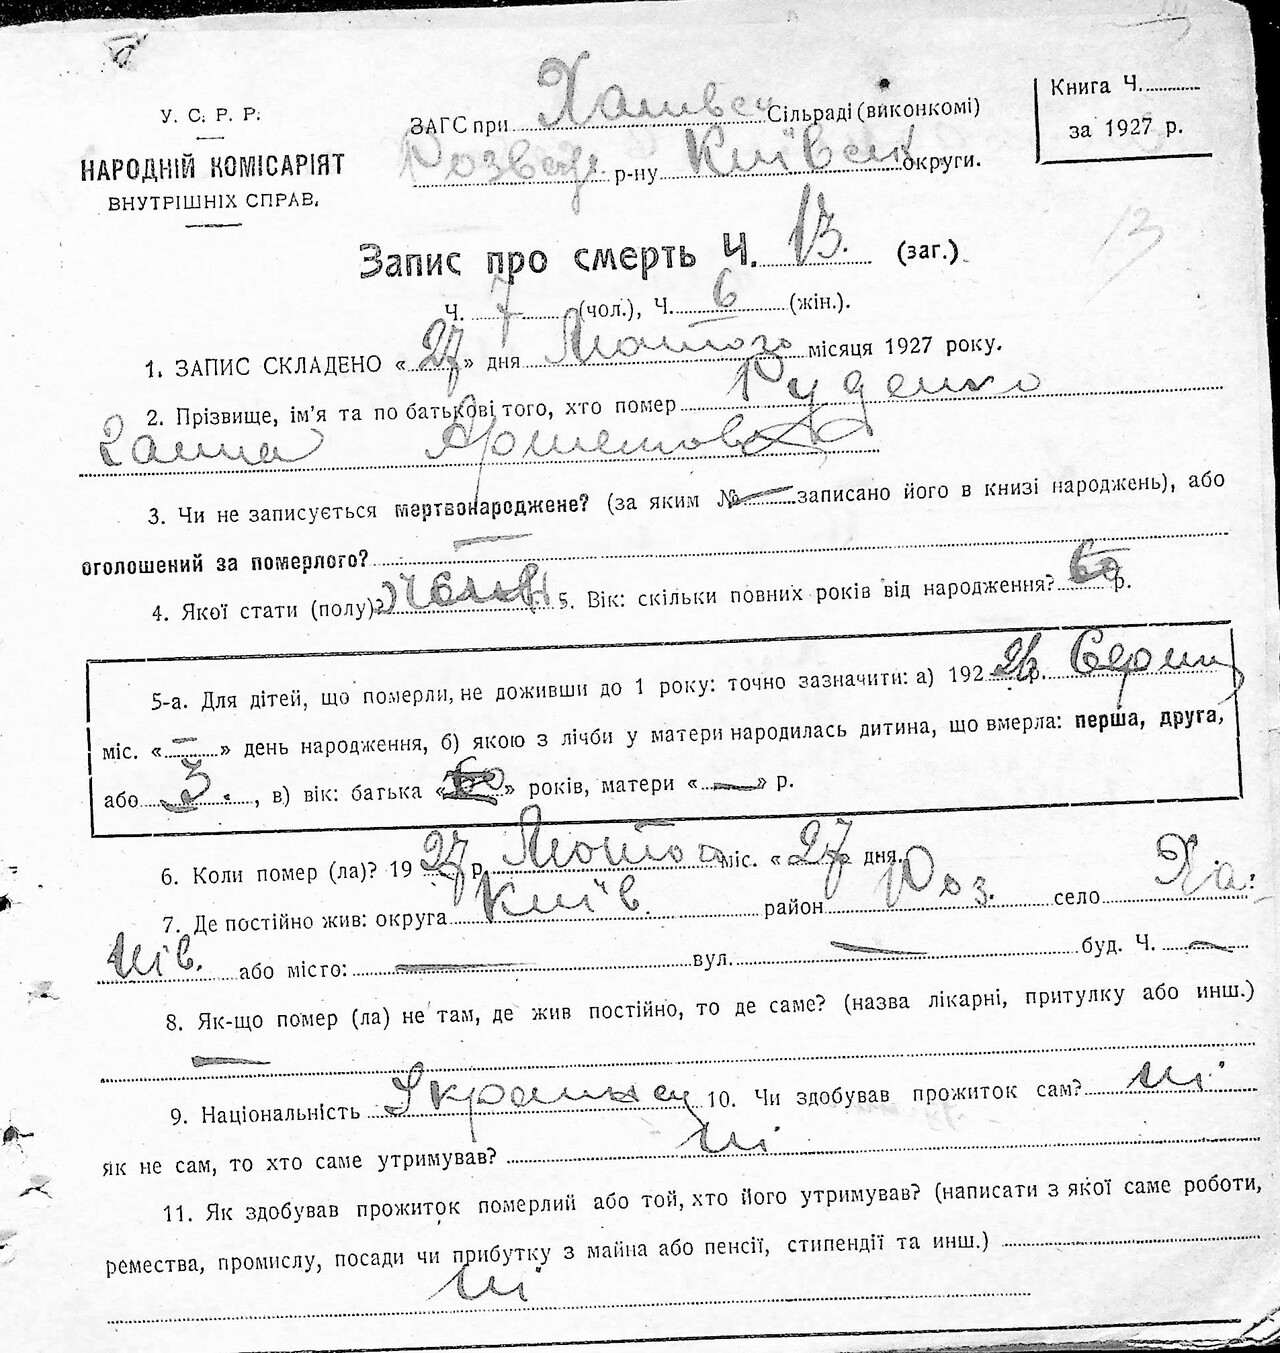 У. С. Р. Р.
НАРОДНІЙ КОМІСАРІЯТ
ВНУТРІШНІХ СПРАВ.
ЗАГС при Сільраді (виконкомі)
Розваж. р-ну Київськ округи.
Книга Ч.
за 1927 р.
Запис про смерть Ч. 13. (заг.)
13
Ч. 7 (чол.), Ч. 6 (жін.).
1. ЗАПИС СКЛАДЕНО «27» дня Лютого місяця 1927 року.
2. Прізвище, ім'я та по батькові того, хто помер Руденко
Ганна
3. Чи не записується мертвонароджене? (за яким № — записано його в книзі народжень), або
оголошений за померлого? —
4. Якої стати (полу)? 5. Вік: скільки повних років від народження? р.
5-а. Для дітей, що померли, не доживши до 1 року: точно зазначити: а) 192 р. Серпн
міс. «—» день народження, б) якою з лічби у матери народилась дитина, що вмерла: перша, друга,
або 3. , в) вік: батька « » років, матери «—» р.
6. Коли помер (ла)? 1927 р. міс. «27» дня.
7. Де постійно жив: округа Київ. район Роз. село Ха:
нів. або місто: — вул. — буд. Ч. —
8. Як-що помер (ла) не там, де жив постійно, то де саме? (назва лікарні, притулку або инш.)
—
9. Національність 10. Чи здобував прожиток сам? ні
як не сам, то хто саме утримував? ні
11. Як здобував прожиток померлий або той, хто його утримував? (написати з якої саме роботи,
ремества, промислу, посади чи прибутку з майна або пенсії, стипендії та инш.)
ні